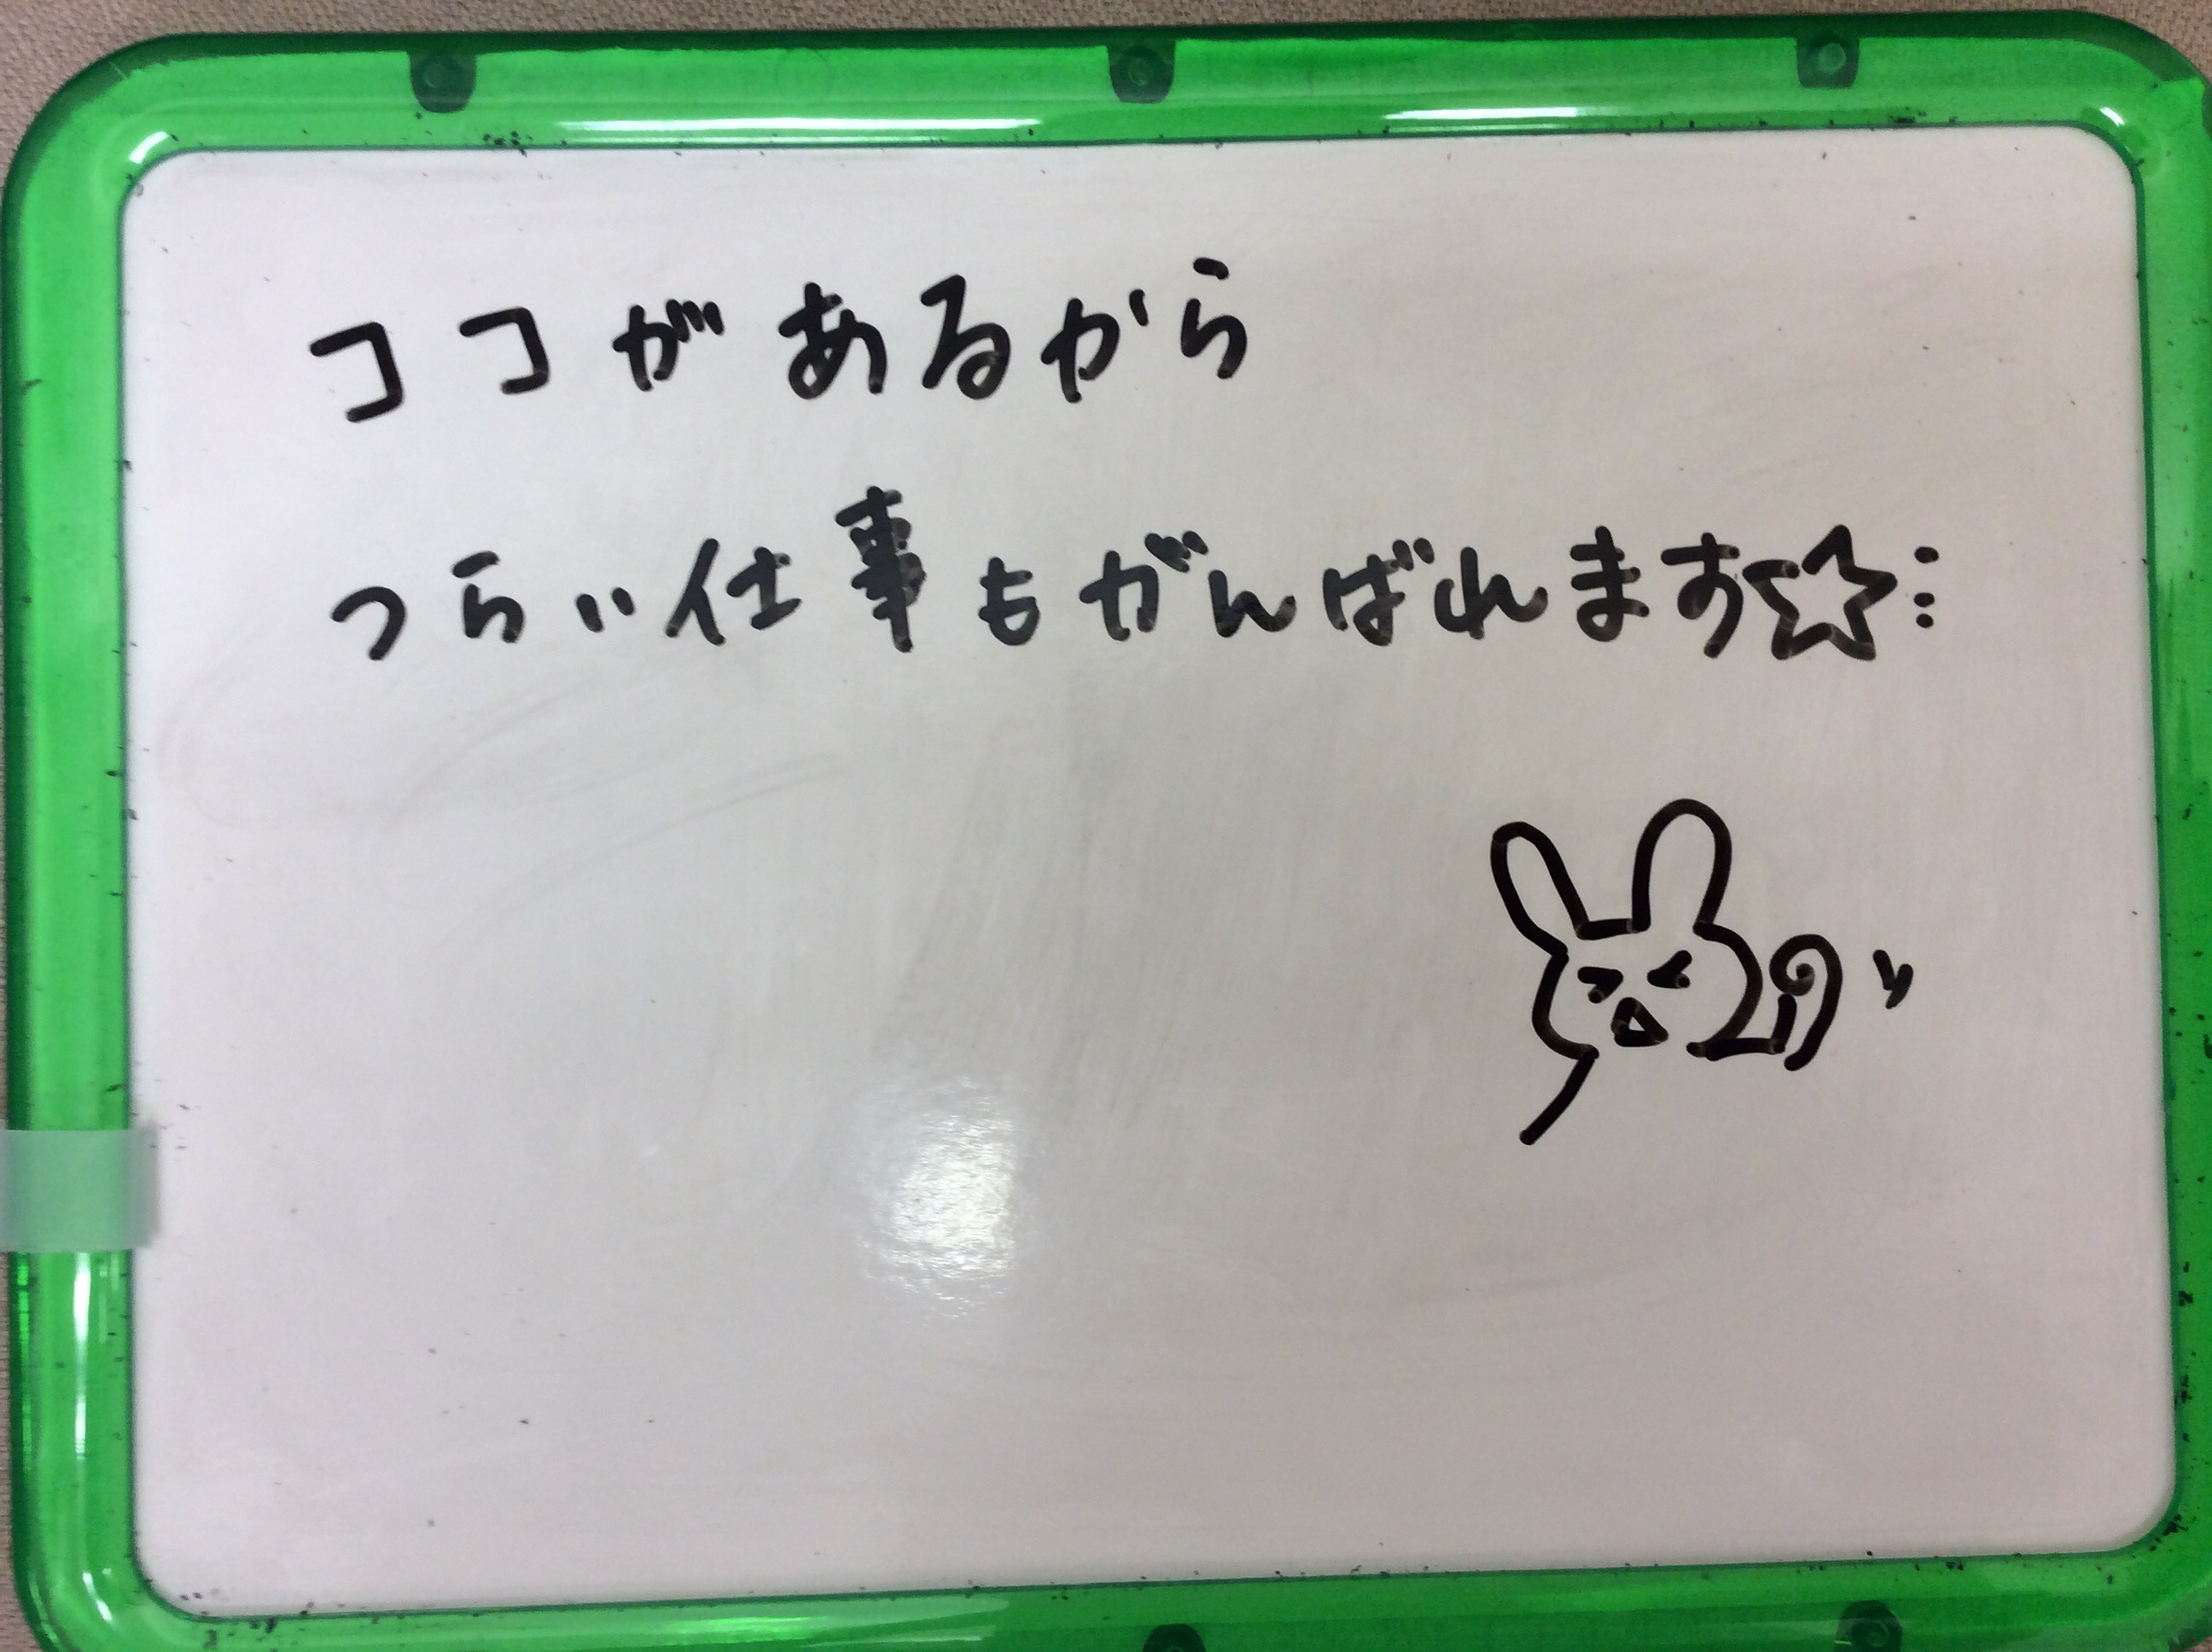 ココがあるから
つらい仕事もがんばれます☆